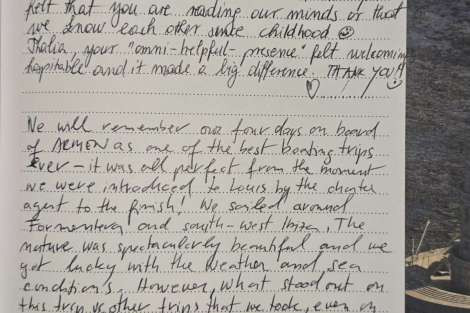 felt that you are reading our minds or that
we know each other since childhood ☺
Thalia, your "omni-helpful-presence" felt welcoming
hospitable and it made a big difference. THANK YOU!
We will remember our four days on board
of as one of the best boating trips
ever – it was all perfect from the moment
we were introduced to Louis by the charter
agent to the finish! We sailed around
Formentera and south-west Ibiza. The
nature was spectacularly beautiful and we
got lucky with the weather and sea
conditions. However, what stood out on
this trip vs other trips that we took, even on